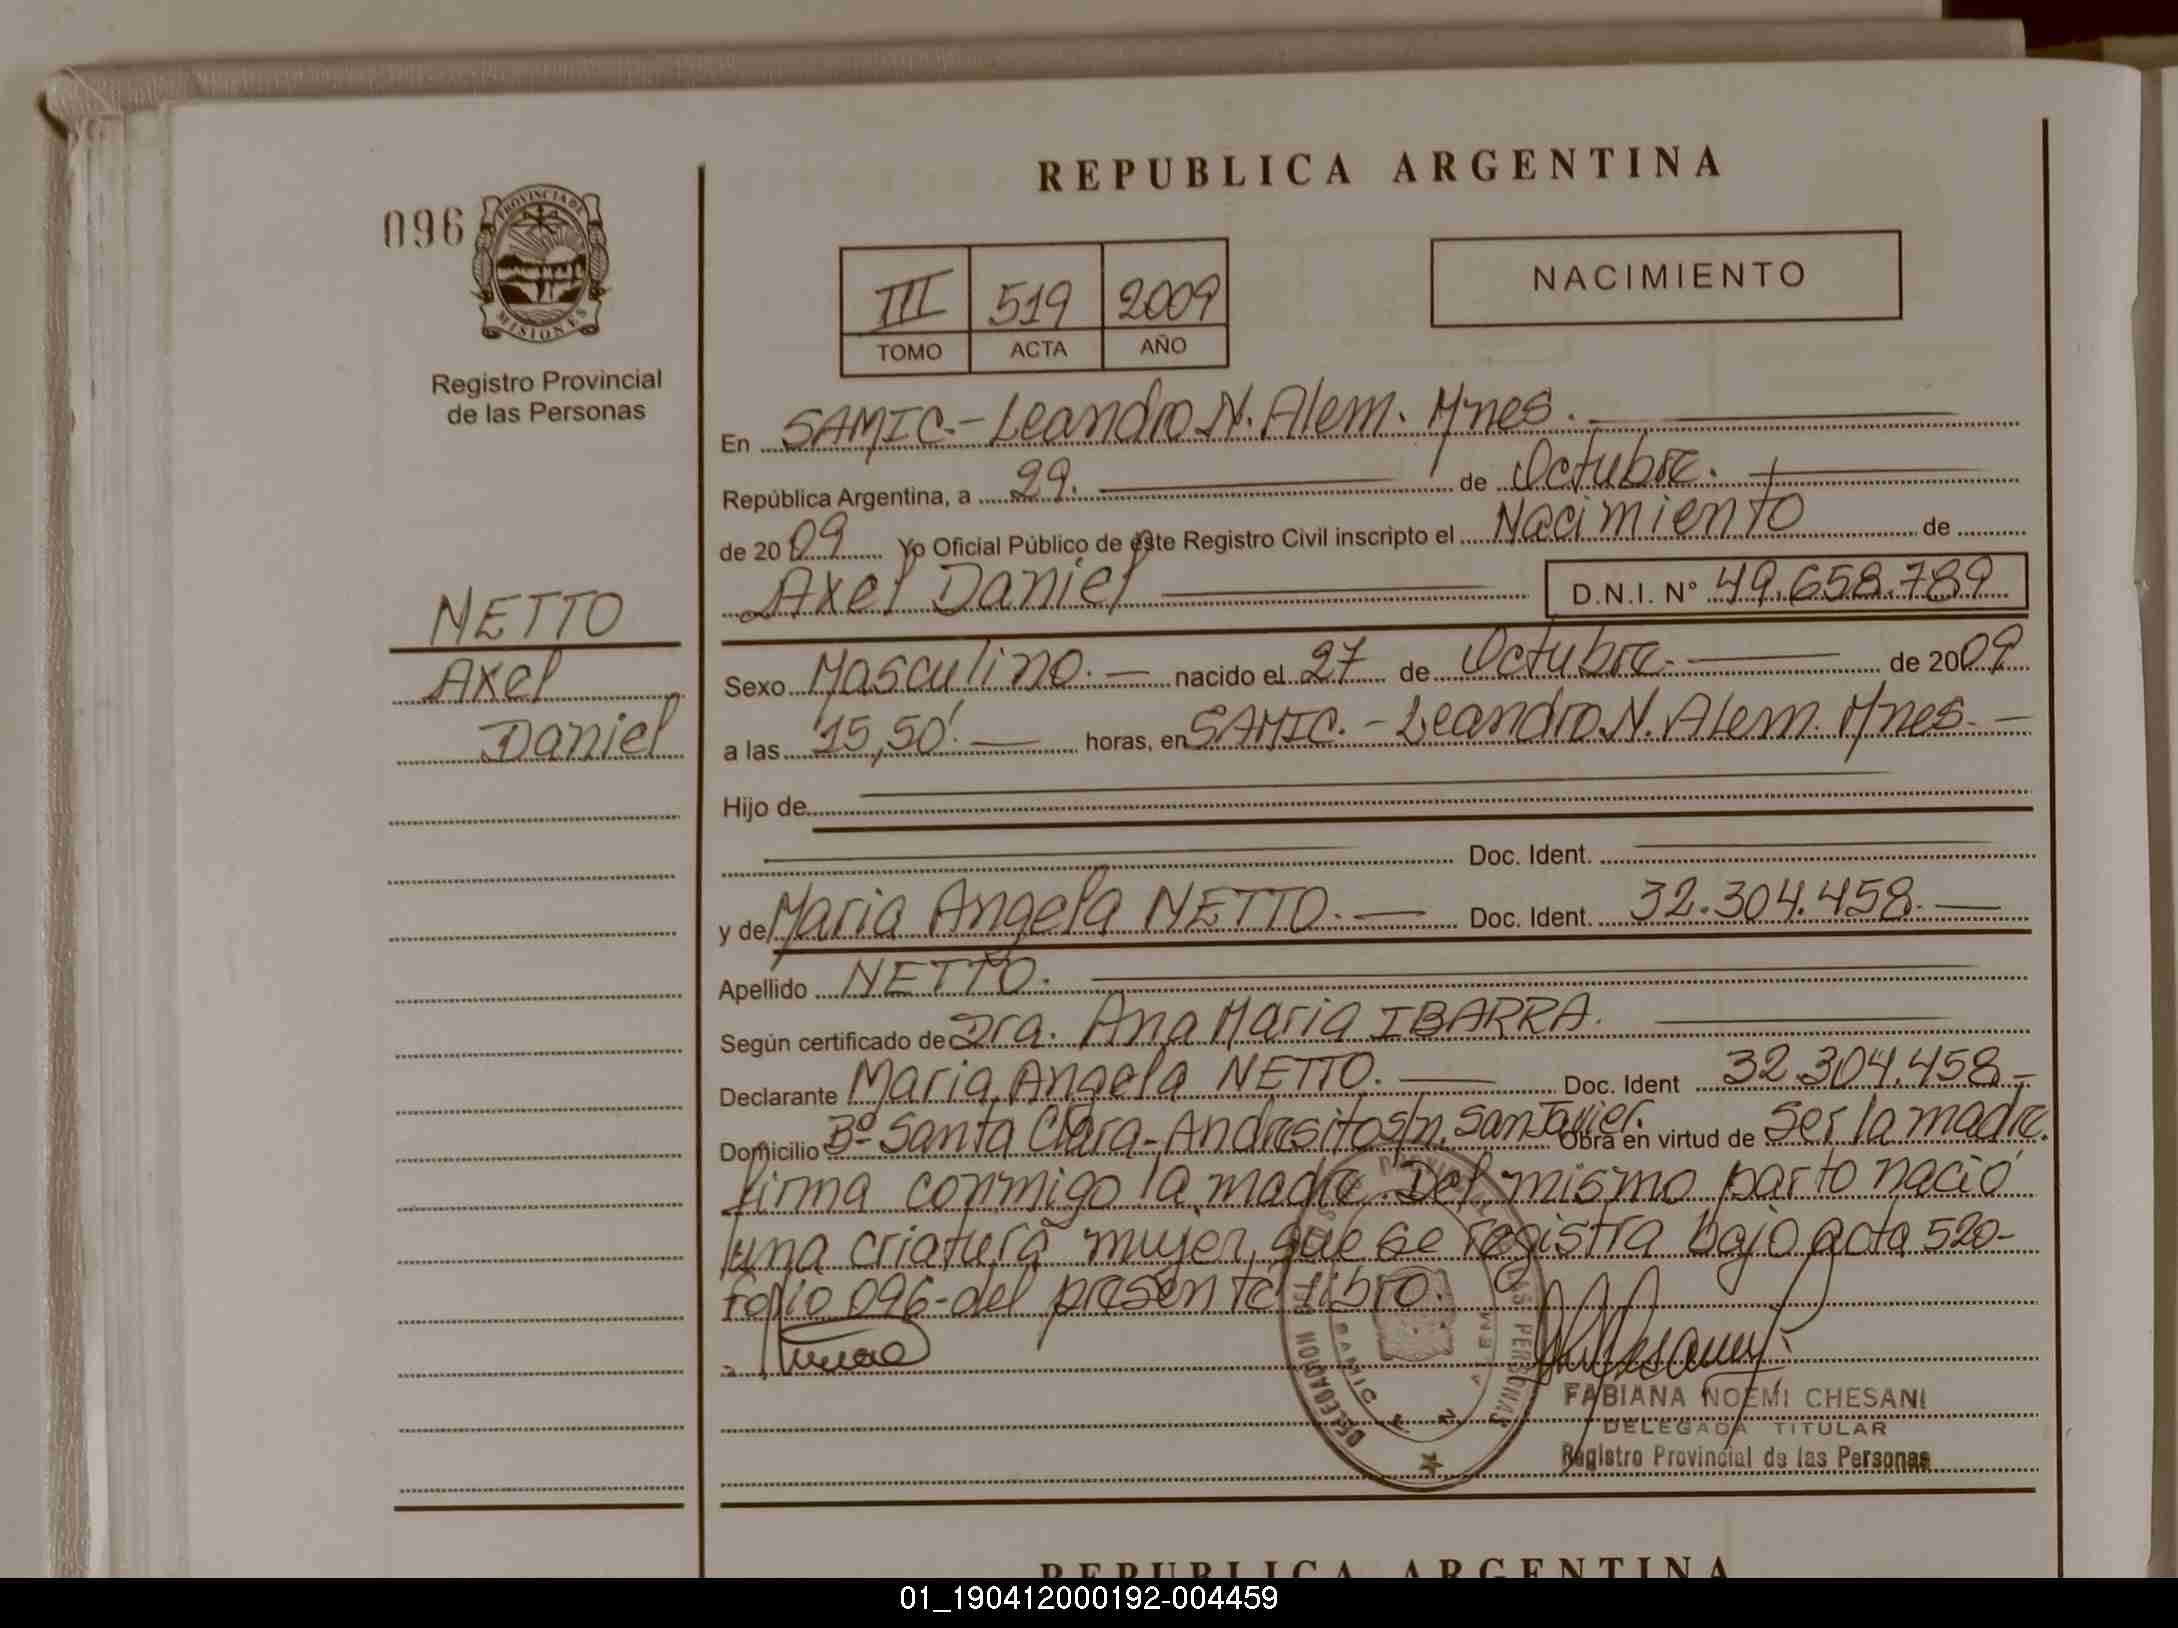 REPUBLICA ARGENTINA
096
PROVINCIA DE
MISIONES
Registro Provincial
de las Personas
III 519 2009
TOMO ACTA AÑO
NACIMIENTO
En SAMIC.- Leandro N. Alem. Mnes.
República Argentina, a 29. de Octubre.
de 20 09 Yo Oficial Público de este Registro Civil inscripto el Nacimiento de
Axel Daniel D.N.I. Nº 49.658.789
NETTO
Axel
Daniel
Sexo Masculino. nacido el 27 de Octubre. de 2009
a las 15,50' horas, en SAMIC. - Leandro N. Alem. Mnes.
Hijo de
Doc. Ident.
y de Maria Angela NETTO. Doc. Ident. 32.304.458.
Apellido NETTO.
Según certificado de Dra. Ana Maria IBARRA.
Declarante Maria Angela NETTO. Doc. Ident 32.304.458-
Domicilio Bº Santa Clara-Andresito s/n. San Javier. Obra en virtud de ser la madre.
firma conmigo la madre. Del mismo parto nació
una criatura mujer, que se registra bajo acta 520-
folio 096-del presente libro.
FABIANA NOEMI CHESANI
DELEGADA TITULAR
Registro Provincial de las Personas
REPUBLICA ARGENTINA
01_190412000192-004459